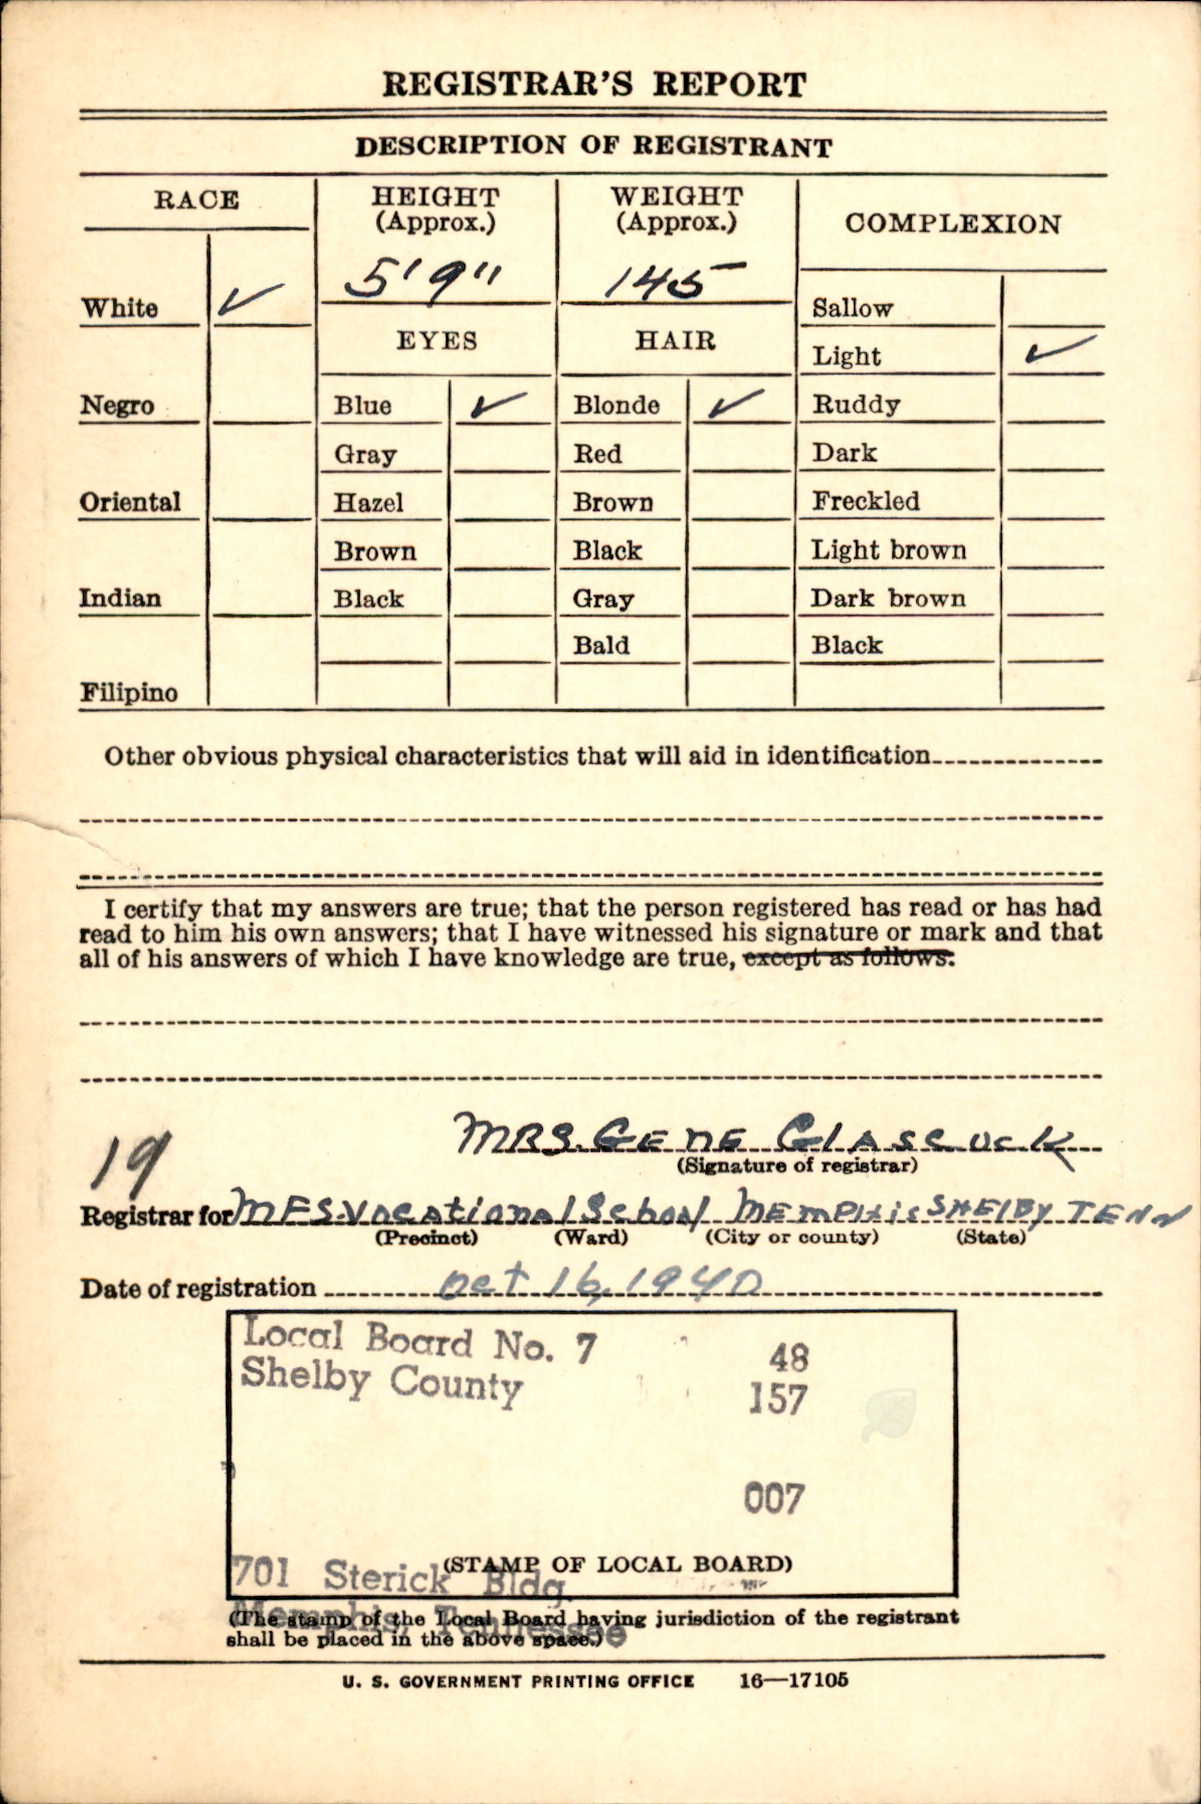 REGISTRAR'S REPORT
DESCRIPTION OF REGISTRANT
RACE
HEIGHT
(Approx.)
WEIGHT
(Approx.)
COMPLEXION
5'9"
145
White ✓
Sallow
EYES
HAIR
Light ✓
Negro
Blue ✓
Blonde ✓
Ruddy
Gray
Red
Dark
Oriental
Hazel
Brown
Freckled
Brown
Black
Light brown
Indian
Black
Gray
Dark brown
Bald
Black
Filipino
Other obvious physical characteristics that will aid in identification
I certify that my answers are true; that the person registered has read or has had
read to him his own answers; that I have witnessed his signature or mark and that
all of his answers of which I have knowledge are true, except as follows:
19
MRS. GENE GlAscock
(Signature of registrar)
Registrar for MFS-Vocational School MEMPHis SHElBy TENN
(Precinct) (Ward) (City or county) (State)
Date of registration Oct 16, 1940
Local Board No. 7 48
Shelby County 157
007
(STAMP OF LOCAL BOARD)
701 Sterick Bldg.
Memphis, Tennessee
(The stamp of the Local Board having jurisdiction of the registrant
shall be placed in the above space.)
U. S. GOVERNMENT PRINTING OFFICE 16—17105